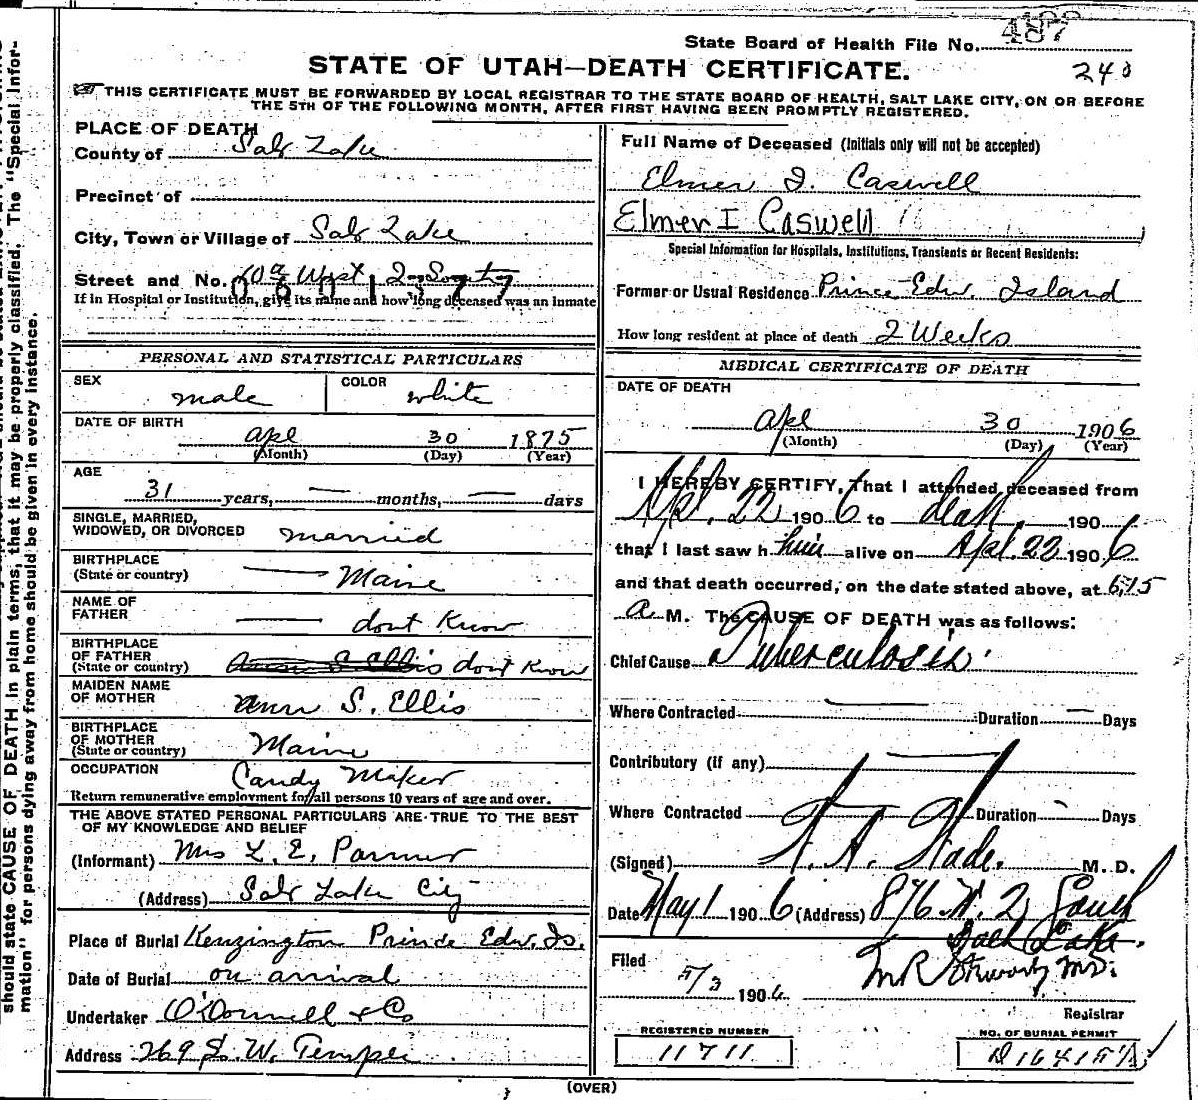 State Board of Health File No. 487
STATE OF UTAH—DEATH CERTIFICATE.
240
THIS CERTIFICATE MUST BE FORWARDED BY LOCAL REGISTRAR TO THE STATE BOARD OF HEALTH, SALT LAKE CITY, ON OR BEFORE
THE 5TH OF THE FOLLOWING MONTH, AFTER FIRST HAVING BEEN PROMPTLY REGISTERED.
should state CAUSE OF DEATH in plain terms, that it may be properly classified. The "Special Infor-
mation" for persons dying away from home should be given in every instance.
PLACE OF DEATH
County of Salt Lake
Precinct of
City, Town or Village of Salt Lake
Street and No. West 2 South
0601377
If in Hospital or Institution, give its name and how long deceased was an inmate
PERSONAL AND STATISTICAL PARTICULARS
SEX male COLOR white
DATE OF BIRTH
Apl 30 1875
(Month) (Day) (Year)
AGE
31 years, — months, — days
SINGLE, MARRIED,
WIDOWED, OR DIVORCED married
BIRTHPLACE
(State or country) — Maine
NAME OF
FATHER — dont Know
BIRTHPLACE
OF FATHER
(State or country) Ann S Ellis dont Know
MAIDEN NAME
OF MOTHER Ann S. Ellis
BIRTHPLACE
OF MOTHER
(State or country) Maine
OCCUPATION Candy Maker
Return remunerative employment for all persons 10 years of age and over.
THE ABOVE STATED PERSONAL PARTICULARS ARE TRUE TO THE BEST
OF MY KNOWLEDGE AND BELIEF
(Informant) Mrs L. E. Parmer
(Address) Salt Lake City
Place of Burial Kenzington Prince Edw. Is.
Date of Burial on arrival
Undertaker O'Donnell & Co
Address 269 S. W. Temple
Full Name of Deceased (Initials only will not be accepted)
Elmer I. Caswell
Elmer I Caswell
Special Information for Hospitals, Institutions, Transients or Recent Residents:
Former or Usual Residence Prince Edw. Island
How long resident at place of death 2 Weeks
MEDICAL CERTIFICATE OF DEATH
DATE OF DEATH
Apl 30 1906
(Month) (Day) (Year)
I HEREBY CERTIFY, That I attended deceased from
Apl. 22 1906 to death, 1906
that I last saw him alive on Apl. 22 1906
and that death occurred, on the date stated above, at 6,15
a M. The CAUSE OF DEATH was as follows:
Chief Cause Tuberculosis.
Where Contracted — Duration — Days
Contributory (if any) —
Where Contracted Duration — Days
(Signed) M. D.
Date May 1 1906 (Address) 876 W. 2 South
Salt Lake.
Filed
5/3 1906 M R Stewart, M.D.
Registrar
REGISTERED NUMBER
11711
NO. OF BURIAL PERMIT
(OVER)